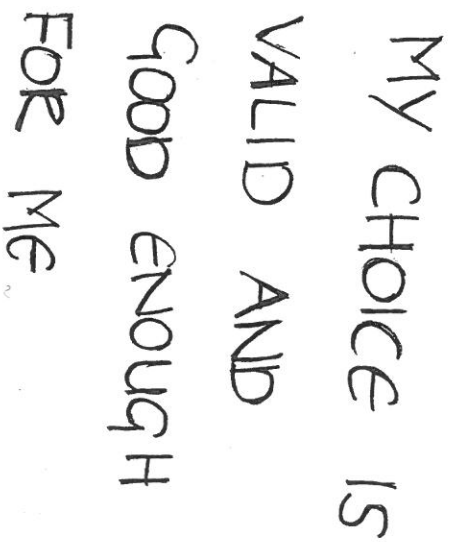 MY CHOICE IS
VALID AND
GOOD ENOUGH
FOR ME